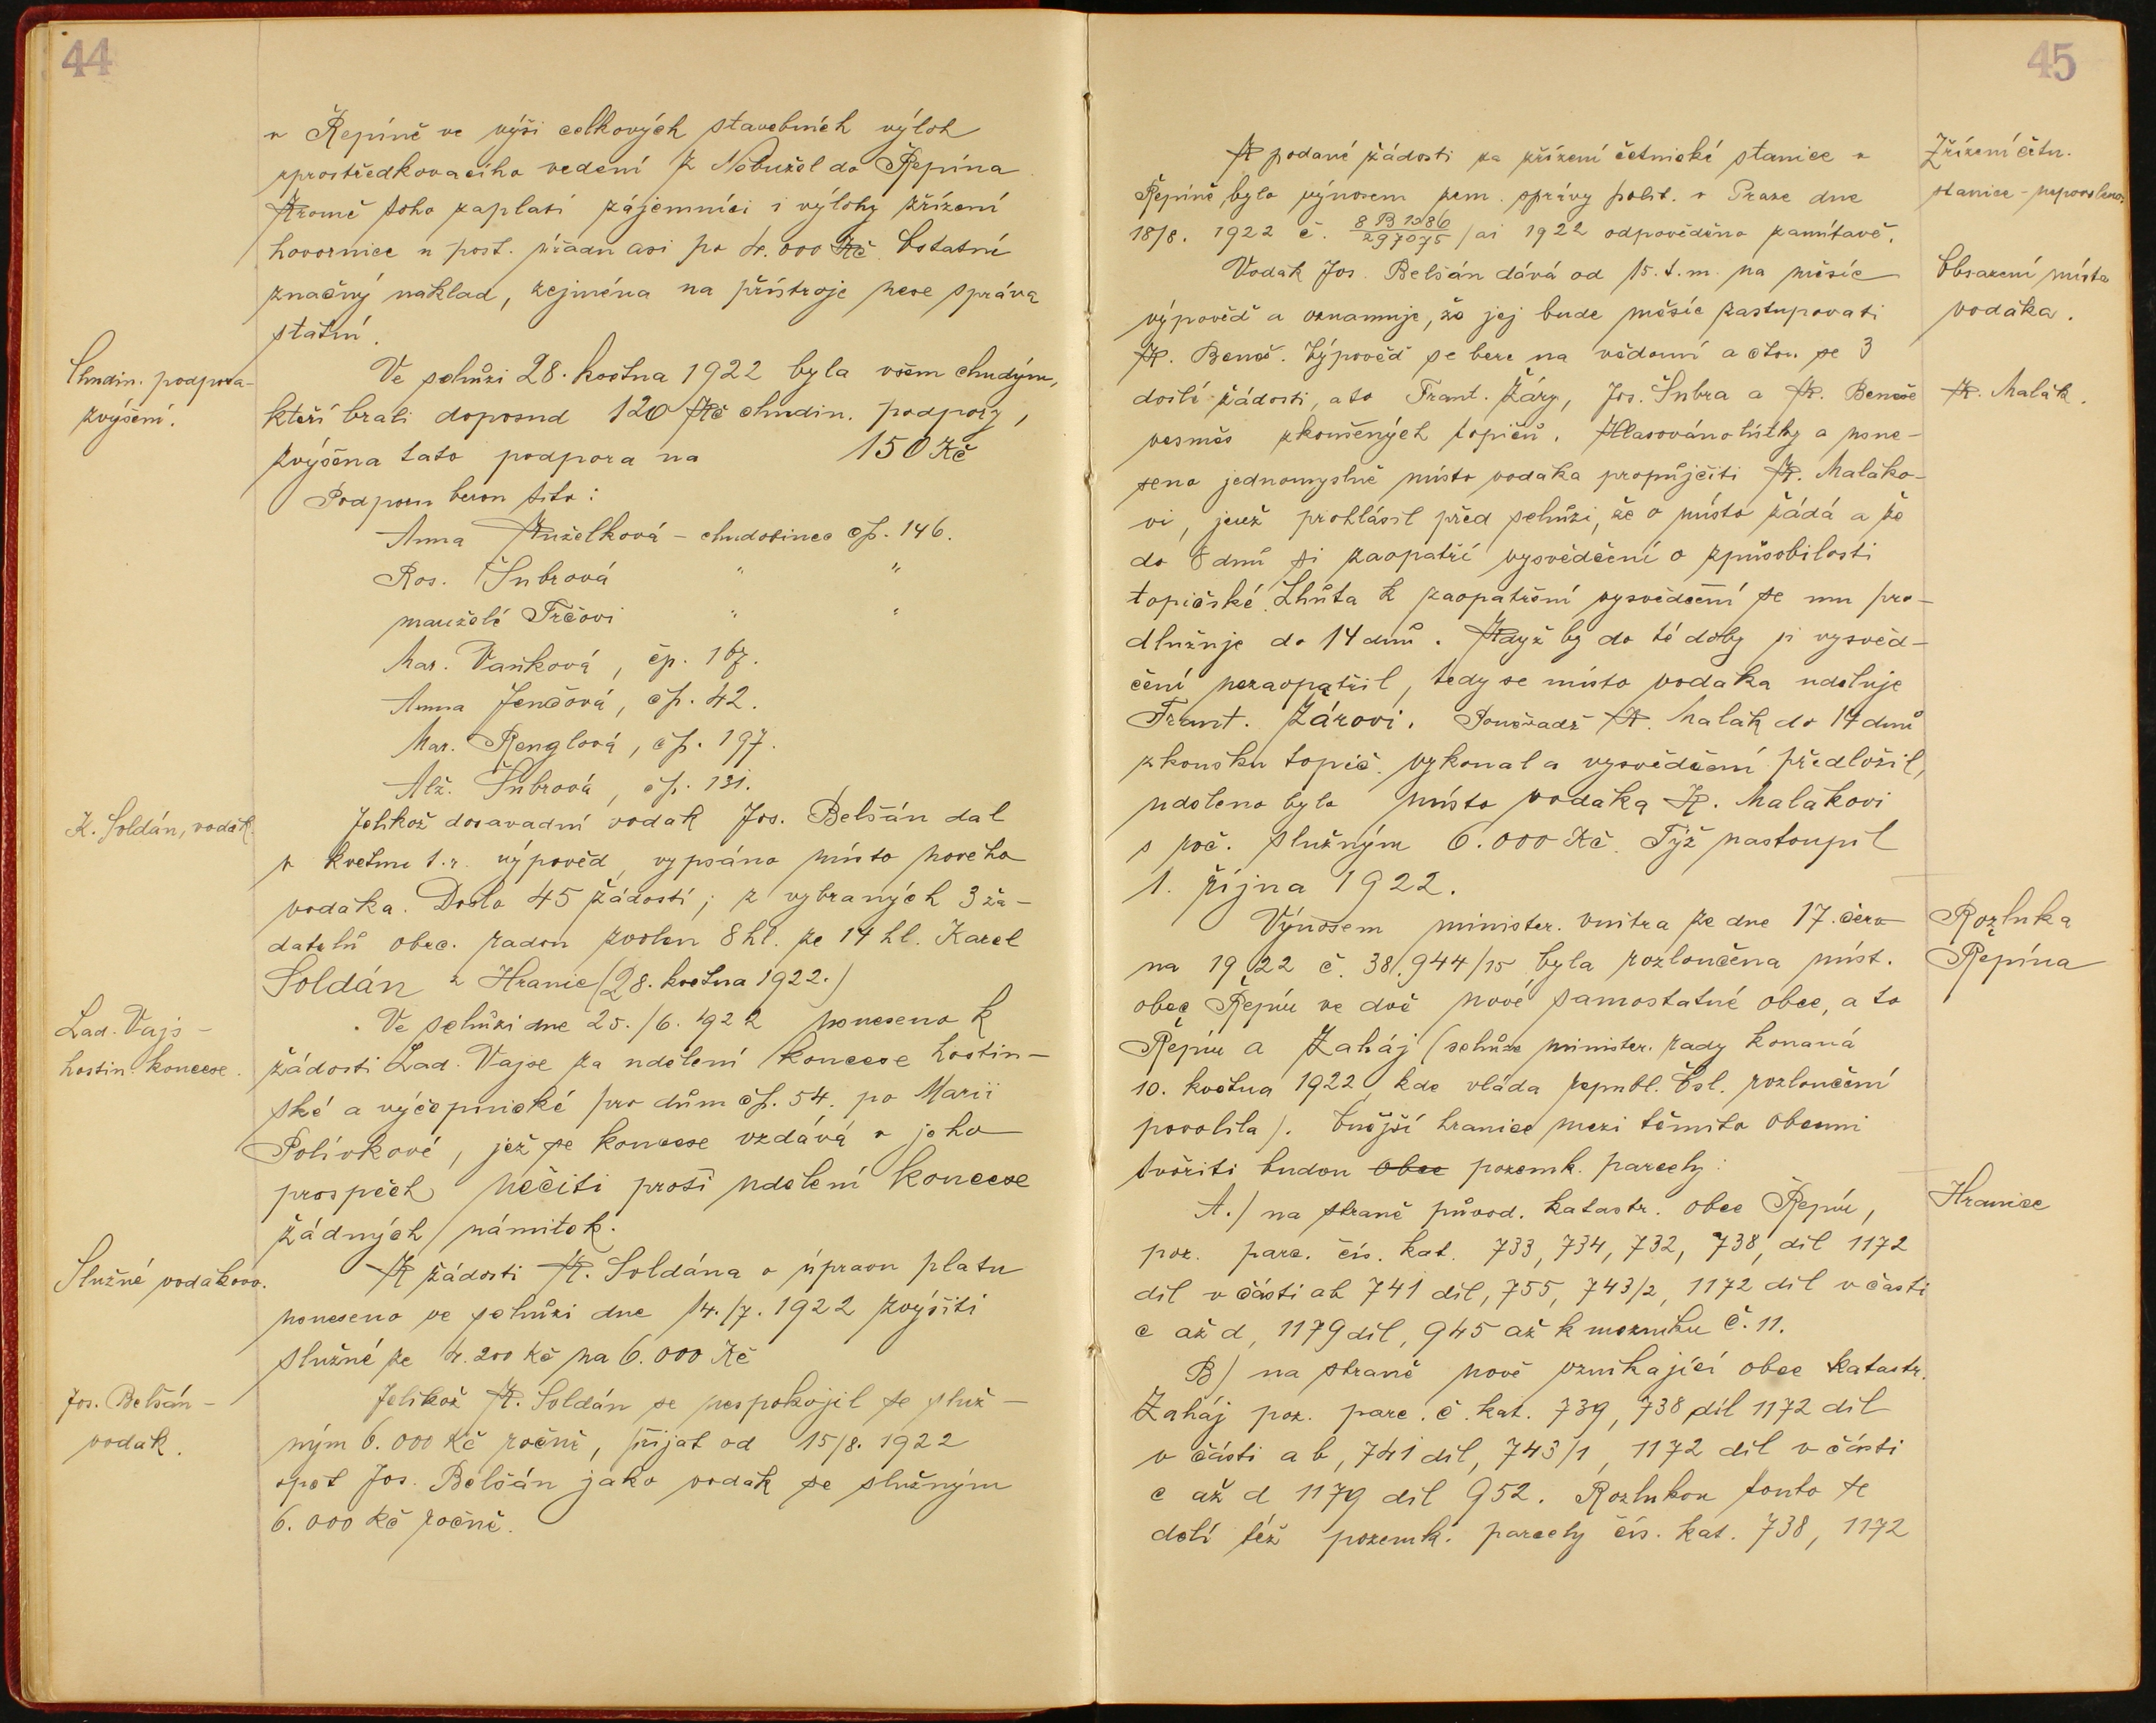 44
v Řepíně ve výši celkových stavebních výloh
zprostředkovacího vedení z Nebužel do Řepína.
Kromě toho zaplatí zájemníci i výlohy zřízení
hovornice u post. úřadu asi po 4.000 Kč. Ostatní
značný náklad, zejména na přístroje nese správa
státní.
Chudin. podpora-
zvýšení.
Ve schůzi 28. května 1922 byla všem chudým,
kteří brali doposud 120 Kč chudin. podpory,
zvýšena tato podpora na 150 Kč
Podporu berou tito:
Anna Kuželková - chudobinec čp. 146.
Ros. Šubrová " "
manželé Trčovi " "
Mar. Vaňková, čp. 167.
Anna Jenčová, čp. 42.
Mar. Renglová, čp. 197.
Alž. Šubrová, čp. 131.
K. Soldán, vodák.
Jelikož dosavadní vodák Jos. Belšán dal
v květnu t.r. výpověď, vypsáno místo nového
vodáka. Došlo 45 žádostí; z vybraných 3 ža-
datelů obec. radou zvolen 8 hl. ze 14 hl. Karel
Soldán z Hranic (28. května 1922.)
Lad. Vajs -
hostin. koncese.
Ve schůzi dne 25./6. 1922 usneseno k
žádosti Lad. Vajse za udělení koncese hostin-
ské a výčepnické pro dům čp. 54. po Marii
Polívkové, jež se koncese vzdává v jeho
prospěch, nečiti proti udělení koncese
žádných námitek.
Služné vodákovo.
K žádosti K. Soldána o úpravu platu
usneseno ve schůzi dne 14./7. 1922 zvýšiti
služné ze 4.200 Kč na 6.000 Kč
Jos. Belšán -
vodák.
Jelikož K. Soldán se nespokojil se služ-
ným 6.000 Kč ročně, přijat od 15/8. 1922
opět Jos. Belšán jako vodák se služným
6.000 Kč ročně.
45
K podané žádosti za zřízení četnické stanice v
Zřízení četn.
Řepíně bylo výnosem zem. správy polit. v Praze dne
stanice - nepovoleno.
18/8. 1922 č. 8 B 1286/297075 / ai 1922 odpověděno zamítavě.
Vodák Jos. Belšán dává od 15. t. m. na měsíc
Obsazení místa
výpověď a oznamuje, že jej bude měsíc zastupovati
vodáka.
K. Beneš. Výpověď se bere na vědomí a čtou se 3
došlé žádosti, a to Frant. Žáry, Jos. Šubra a K. Beneše
K. Malák.
vesměs zkoušených topičů. Hlasováno lístky a usne-
seno jednomyslně místo vodáka propůjčiti K. Maláko-
vi, jenž prohlásil před schůzi, že o místo žádá a že
do 8 dnů si zaopatří vysvědčení o způsobilosti
topičské. Lhůta k zaopatření vysvědčení se mu pro-
dlužuje do 14 dnů. Když by do té doby si vysvěd-
čení nezaopatřil, tedy se místo vodáka uděluje
Frant. Žárovi. Poněvadž K. Malák do 14 dnů
zkoušku topič. vykonal a vysvědčení předložil,
uděleno bylo místo vodáka K. Malákovi
s poč. služným 6.000 Kč. Týž nastoupil
1. října 1922.
Výnosem minister. vnitra ze dne 17. červ-
Rozluka
na 1922 č. 38.944/15 byla rozloučena míst.
Řepína
obec Řepín ve dvě nové samostatné obce, a to
Řepín a Zaháj (schůze minister. rady konaná
10. května 1922, kde vláda republ. Čsl. rozloučení
povolila). Vnější hranice mezi těmito obcemi
tvořiti budou obce pozemk. parcely:
A.) na straně původ. katastr. obce Řepín,
Hranice
poz. parc. čís. kat. 733, 734, 732, 738, díl 1172
díl v části ab 741 díl, 755, 743/2, 1172 díl v části
c až d, 1179 díl, 945 až k mezníku č. 11.
B) na straně nově vznikající obce katastr.
Zaháj poz. parc. č. kat. 739, 738 díl 1172 díl
v části a b, 741 díl, 743/1, 1172 díl v části
c až d 1179 díl 952. Rozlukou touto se
dělí též pozemk. parcely čís. kat. 738, 1172